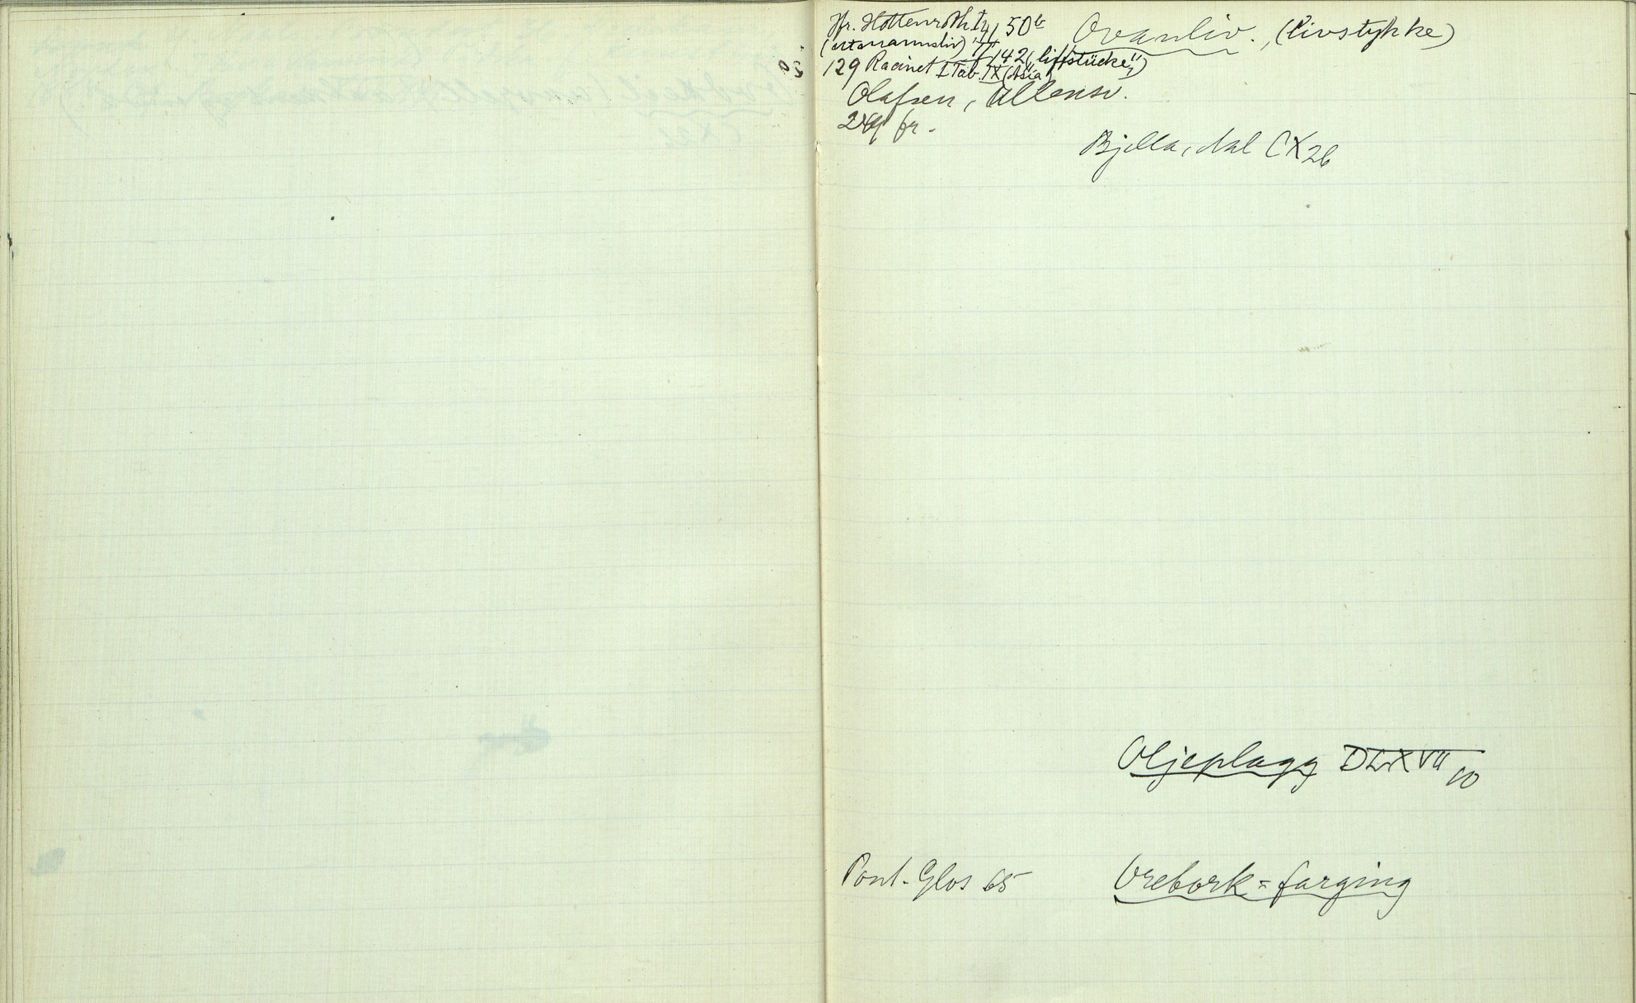 Jfr. Hottenroth IV, 50b
Ovanliv., (Livstykke)
II, 142 („liffstücke")
129 Racinet I Tab. IX (Asia)
Olafsen, Ullensv.
249 fr.
Bjella, dal CX 26
Oljeplagg DLXVII 10
Pont. Glos 65
Orebork=farging